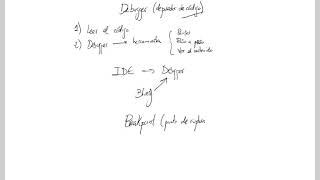 Debugger (depurador de código)
1) Leer el código
2) Debugger → herramienta
Pausar
Paso a paso
Ver el contenido
IDE → Debugger
BlueJ
Breakpoint (punto de ruptura